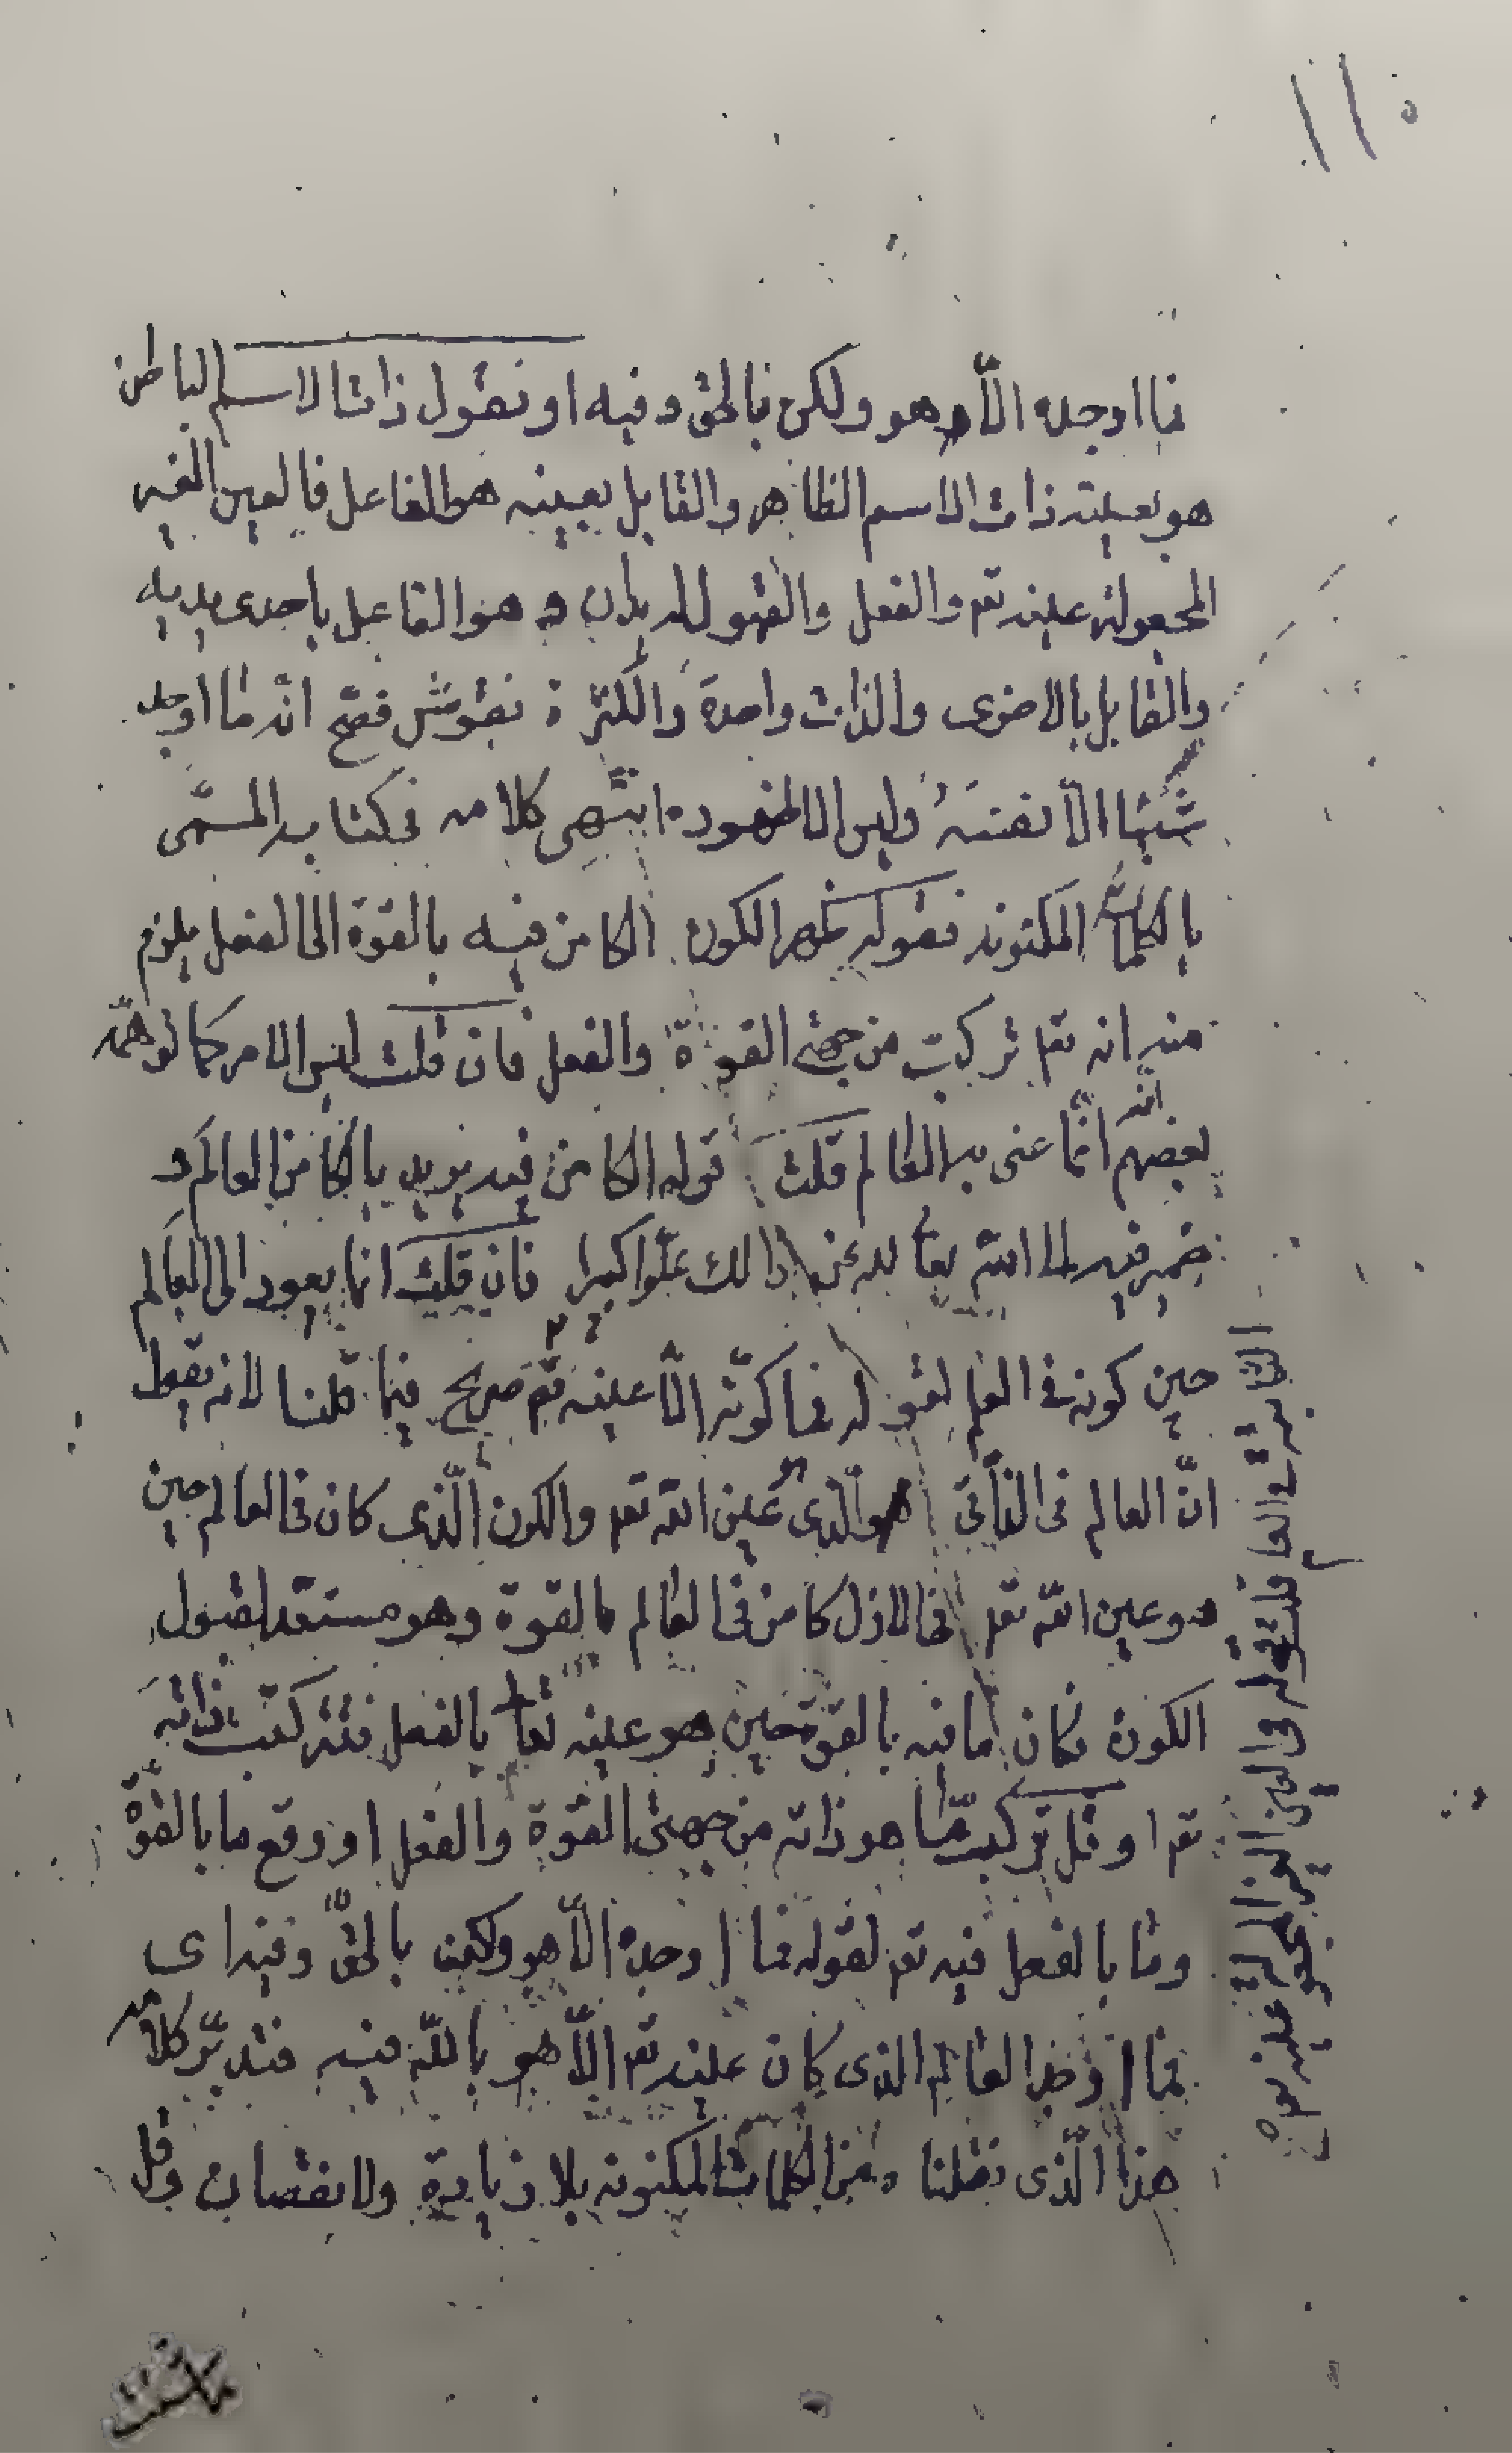 ١١٥
فما اوجده الّا هو ولكن بالحق وفيه او نقول ذات الاسم الباطن
هو بعينه ذات الاسم الظاهر والقابل بعينه هو الفاعل فالعين الغير
المجعولة عينه تعـ والفعل والقبول له يدان و هو الفاعل باحدى يديه
والقابل بالاخرى والذات واحدة والكثرة نقوش فصحّ انه ما اوجد
شيئا الّا نفسه وليس الا ظهوره انتهى كلامه فى كتابه المسمّى
بالكلمات المكنونه فقوله ظهر الكون الكامن فيه بالقوة الى الفعل يلزم
منه انه تعـ تركبت من جهتى القوة والفعل فان قلت ليس الامر كما توهمّه
بعضهم انّه انّما عنى به العالم قلت قوله الكامن فيه يريد بالكامن العالم و
ضمير فيه الى الله تعالى عن ذالك علّوا كبيرا فان قلت انما يعود الى العالم
حين كونه فى العلم لقوله فما كوّنه الّا عينه قلت صريح فيما قلنا لانه يقول
انّ العالم فى الذاتى هو الّذى هو عين الله تعـ والكون الّذى كان فى العالم حين
هو عين الله تعـ فى الازل كامن فى العالم بالقوة وهو مستعد لقبول
الكون فكان ما فيه بالقوة حين هو عينه تعا بالفعل فتركبت ذاته
تعـ او قل تركب ممّا هو ذاته من جهتى القوة والفعل او وقع ما بالقوّة
وما بالفعل فيه تعـ لقوله فما اوجده الّا هو ولكن بالحقّ وفيه اى
فما اوجد العالم الذى كان عينه تعـ الّا هو بالله فيه فتدبّر كلامه
هذا الّذى نقلنا من الكلمات المكنونه بلا زيادة ولا نقصان وقل
الثابتة فى العلم قلت قوله فالعين الغير المجعولة عينه تعـ